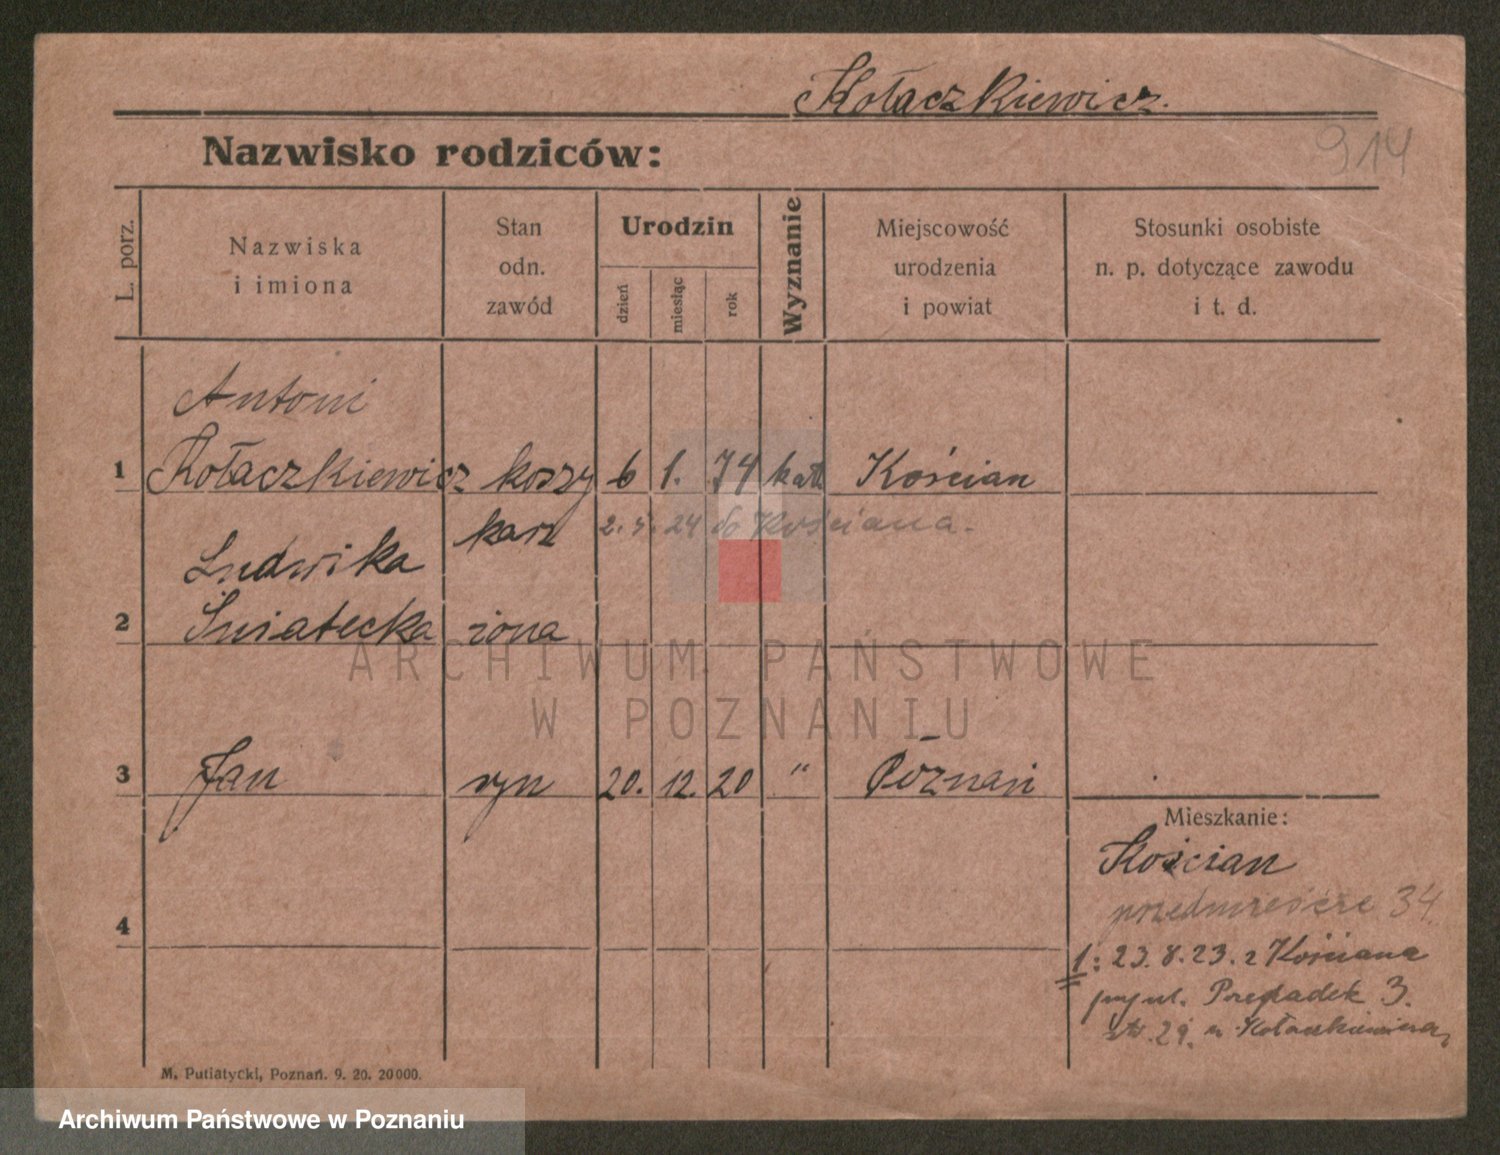 Kołaczkiewicz.
914
Nazwisko rodziców:
L. porz.
Nazwiska
i imiona
Stan
odn.
zawód
Urodzin
dzień
miesiąc
rok
Wyznanie
Miejscowość
urodzenia
i powiat
Stosunki osobiste
n. p. dotyczące zawodu
i t. d.
Antoni
1 Kołaczkiewicz koszy 6 1. 74 kat Kościan
karz 2. 5. 24 do Kościana.
Ludwika
2 Śniatecka żona
ARCHIWUM PAŃSTWOWE
W POZNANIU
3 Jan syn 20. 12. 20 " Poznań
Mieszkanie:
Kościan
przedmieście 34.
4
1: 23.8.23. z Kościana
przy ul. Przepadek 3.
29. u Kołaczkiewicza
M. Putiatycki, Poznań. 9. 20. 20000.
Archiwum Państwowe w Poznaniu